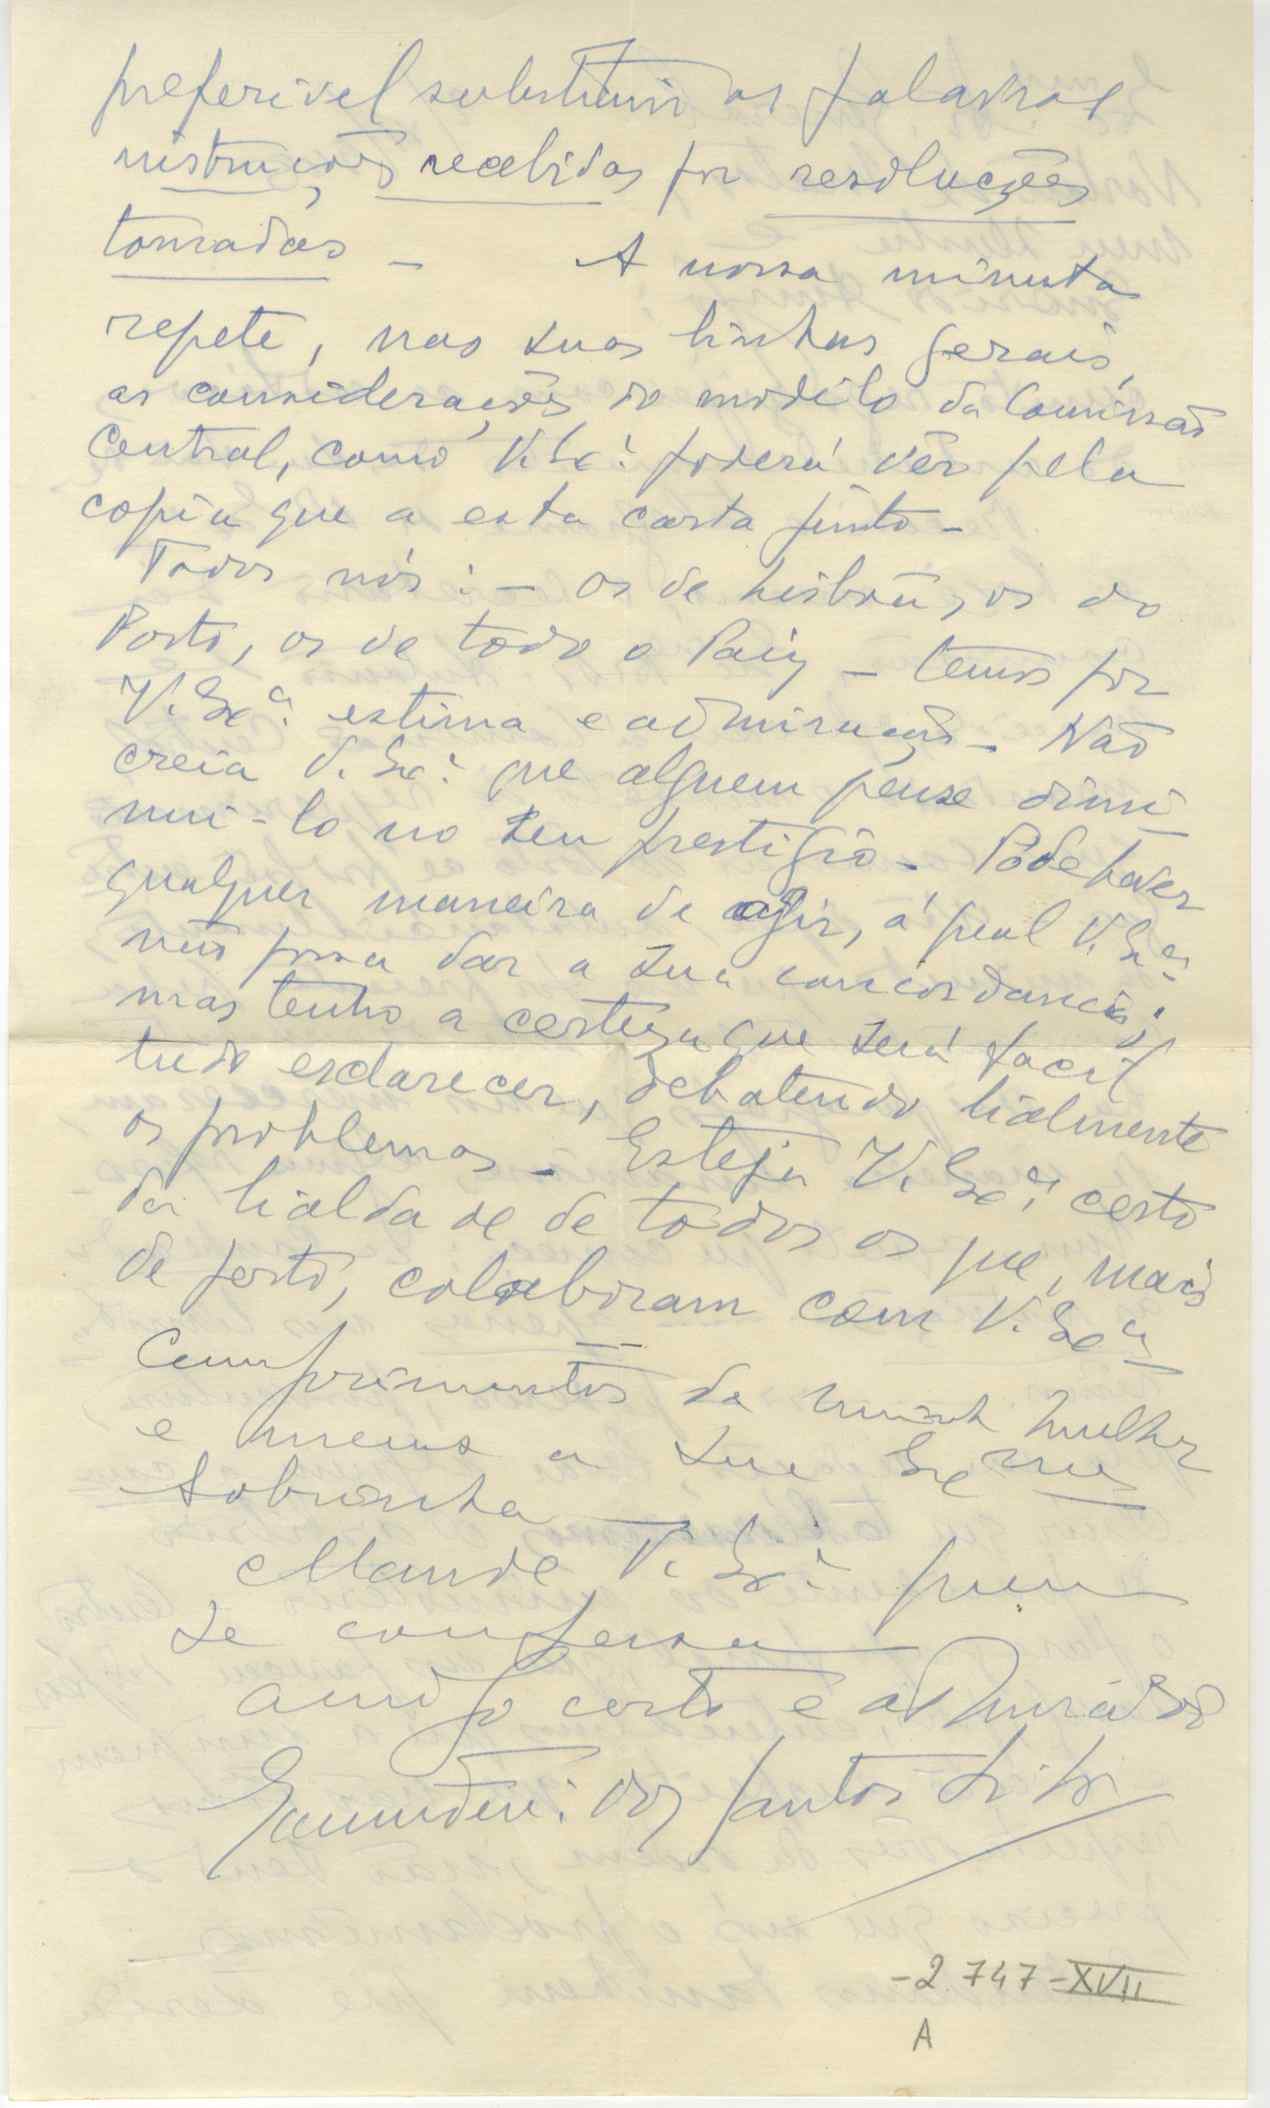 preferivel substituir as palavras
instruções recebidas por resoluções
tomadas – A nossa minuta
repete, nas suas linhas gerais,
as considerações do modêlo da Comissão
Central, como V. Exª. poderá vêr pela
copia que a esta carta junto –
Todos nós: – os de Lisboa, os do
Porto, os de todo o Paiz – temos por
V. Exª. estima e admiração – Não
creia V. Exª. que alguem pense dimi
nui-lo no seu prestigio – Póde haver
qualquer maneira de agir, á qual V. Exª.
não possa dar a sua concordancia;
mas tenho a certeza que será facil
tudo esclarecer, debatendo lialmente
os problemas – Esteja V. Exª. certo
da lialdade de todos os que, mais
de perto, colaboram com V. Exª.
Cumprimentos da minha mulher
e meus a sua Exma
Sobrinha
Mande V. Exª. quem
se confessa
amigo certo e admirador
dos Santos
- 2.747 - XVII
A